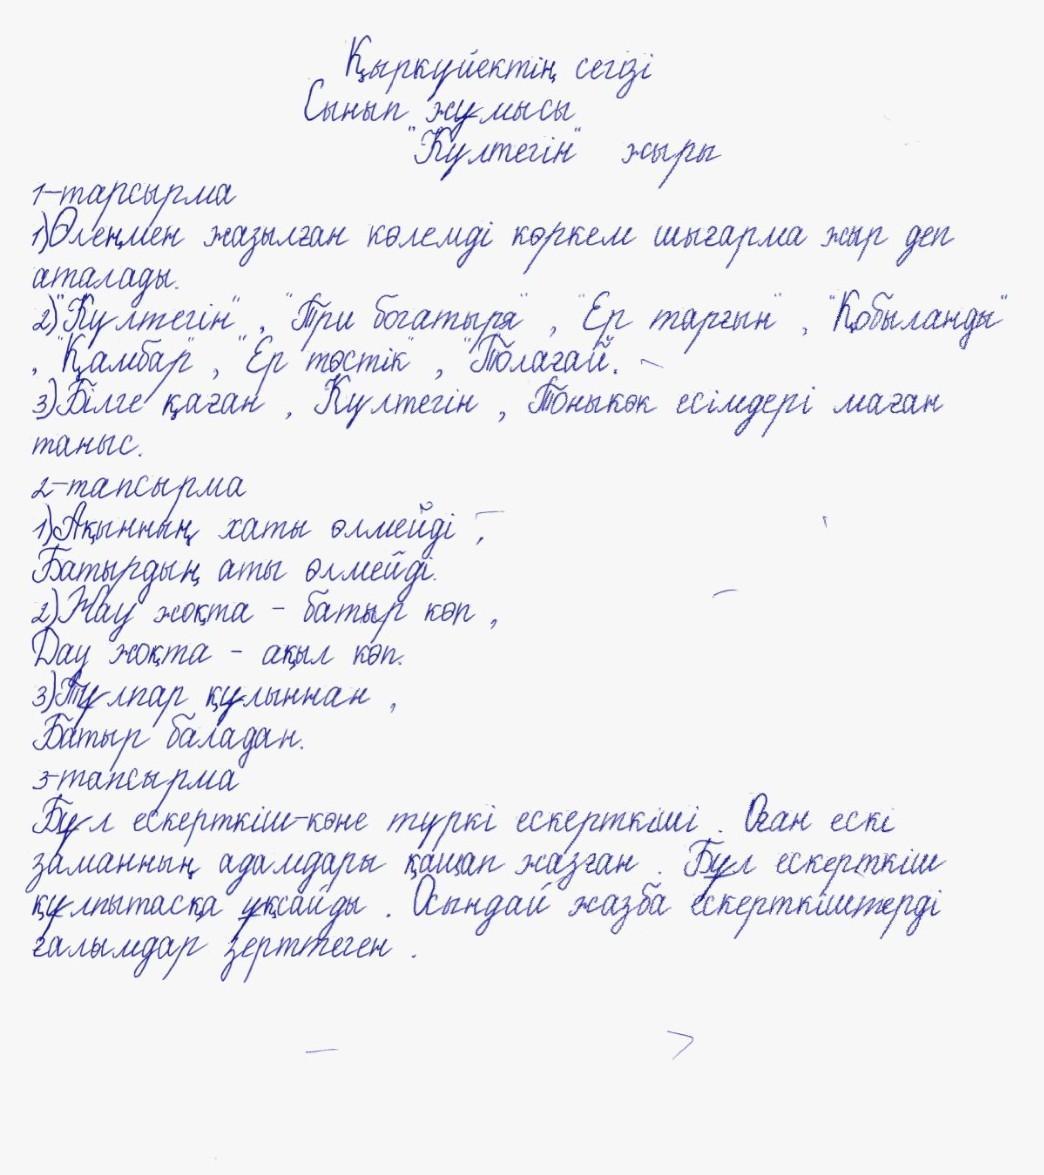 Қыркүйектің сегізі
Сынып жұмысы
"Күлтегін" жыры
1-тарсырма
1)Өлеңмен жазылған көлемді көркем шығарма жыр деп
аталады.
2)"Күлтегін", "Три богатыря", "Ер тарғын", "Қобыланды"
, "Қамбар", "Ер төстік", "Толағай.
3)Білге қаған, Күлтегін, Тоныкөк есімдері маған
таныс.
2-тапсырма
1)Ақынның хаты өлмейді,
Батырдың аты өлмейді.
2)Жау жоқта - батыр көп,
Дау жоқта - ақыл көп.
3)Тұлпар құлыннан,
Батыр баладан.
3-тапсырма
Бұл ескерткіш-көне түркі ескерткіші. Оған ескі
заманның адамдары қашап жазған. Бұл ескерткіш
құлпытасқа ұқсайды. Осындай жазба ескерткіштерді
ғалымдар зерттеген.